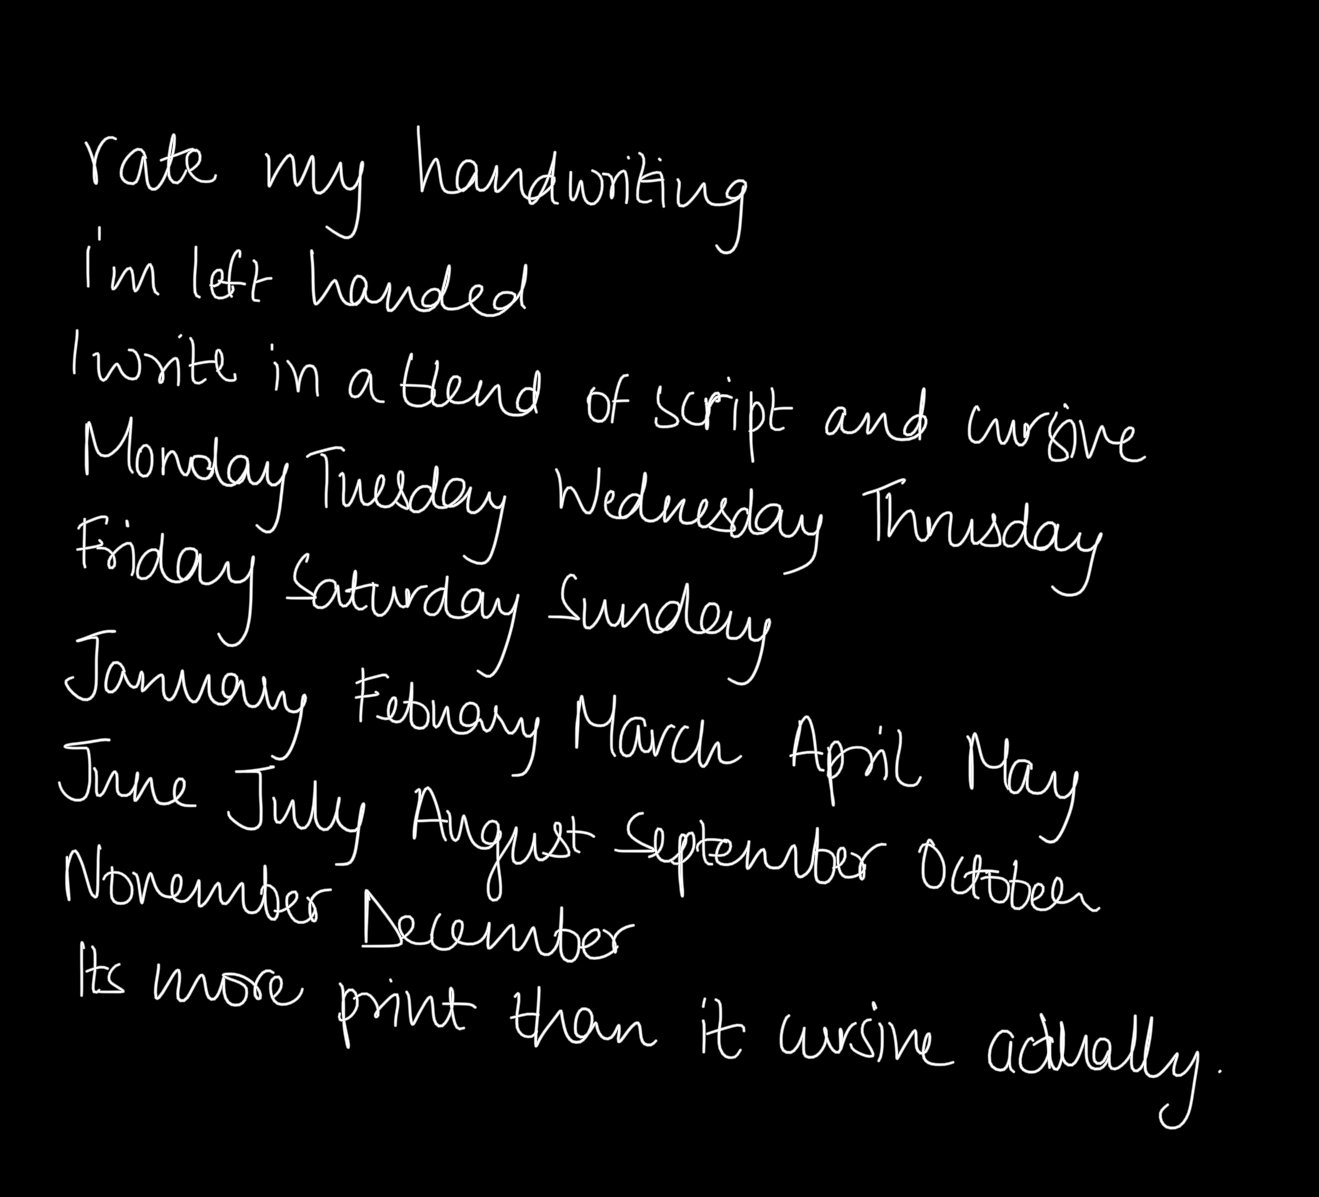 rate my handwriting
i'm left handed
I write in a blend of script and cursive
Monday Tuesday Wednesday Thrusday
Friday Saturday Sunday
January Februrary March April May
June July August September October
November December
Its more print than it cursive actually.